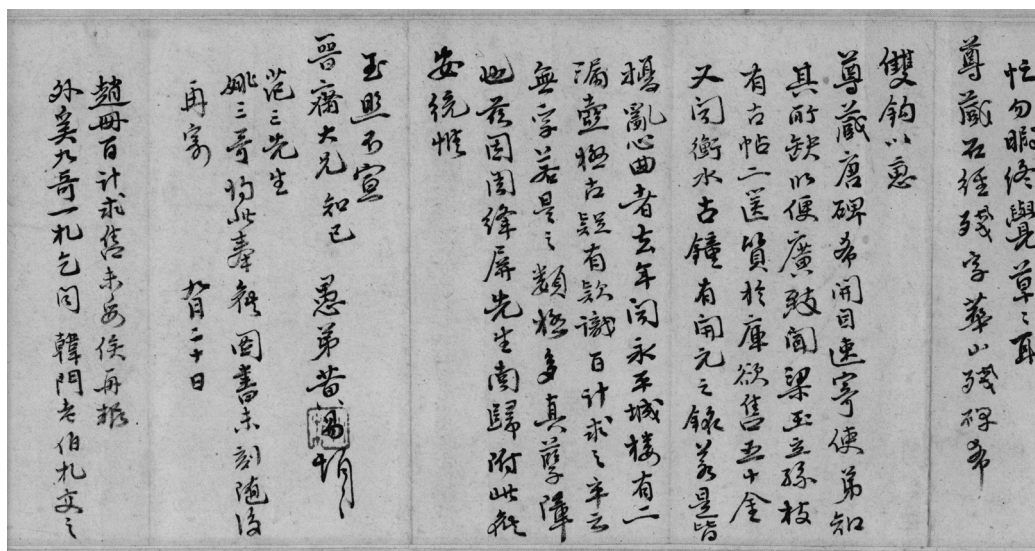 忙勿暇終覺草之耳
尊藏石經殘字華山殘碑希
雙鈎以惠
尊藏唐碑希開目速寄使弟知
其所缺以便廣致聞梁玉立孫枝
有古帖二匧質於庫欲售五十金
又聞衡水古鐘有開元之銘若是皆
擾亂心曲者去年聞永平城樓有二
漏壺極古疑有款識百計求之卒云
無字若是之類極多真孽障
也茲因閻絳屏先生南歸附此候
安統惟
玉照不宣
晉齋大兄知己 愚弟黃易頓
范三先生
姚三哥均此奉候圖書未刻隨後
再寄 九月二十日
趙冊百計求售未妥俟再報
外奚九哥一札乞同韓門老伯札交之